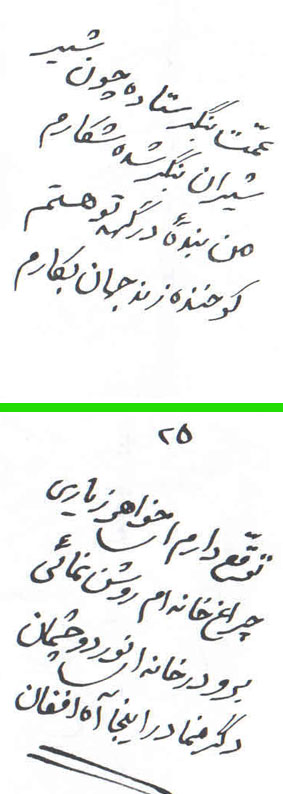 عمت بنگر ستاده چون شیر
شیران بنگر شده شکارم
من بندهٔ درگهه تو هستم
کو خنده زند جهان بکارم
۲۵
توقع دارم اسا خواهر زیاری
چراغ خانه ام روشن نمائی
برو در خانه ات نور دو چشمان
دگر منما در اینجا آه افغان